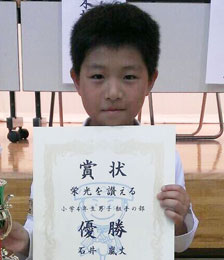 賞状
栄光を讃える
小学4年生男子 組手の部
優勝
石井 嵐丈